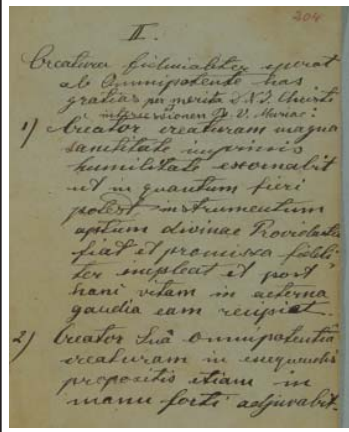 204
II.
Creatura fiducialiter sperat
ab Omnipotente has
gratias per merita D.N.J. Christi
et intercessionem B. V. Mariae:
1) Creator creaturam magna
sanctitate imprimis
humilitate exornabit
ut in quantum fieri
potest instrumentum
aptum divinae Providentiae
fiat et promissa fideli-
ter impleat et post
hanc vitam in aeterna
gaudia eam recipiat.
2) Creator Suâ omnipotentiâ
creaturam in exequendis
propositis etiam in
manu forti adjuvabit.